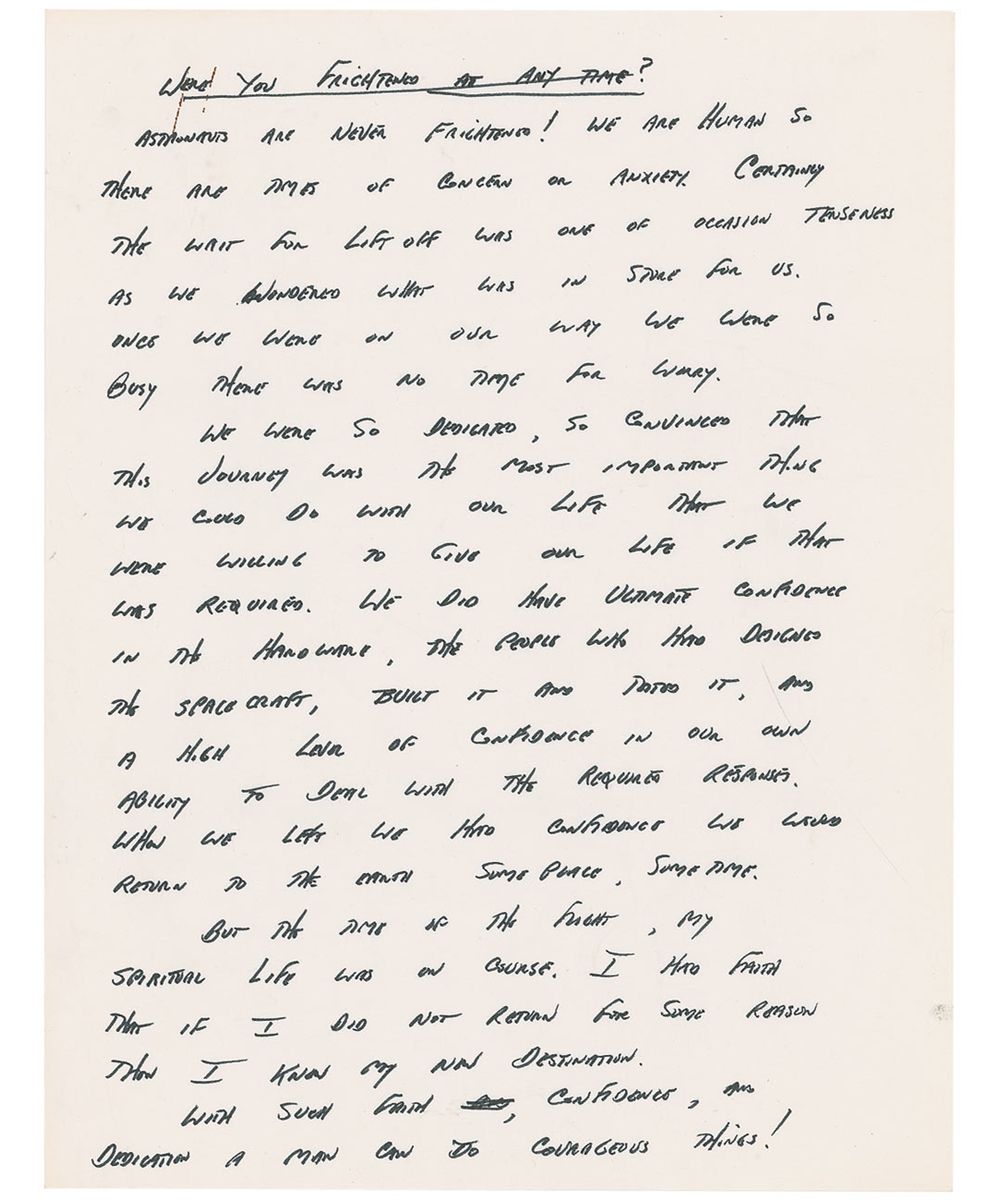 WERE YOU FRIGHTENED AT ANY TIME?
ASTRONAUTS ARE NEVER FRIGHTENED! WE ARE HUMAN SO
THERE ARE TIMES OF CONCERN OR ANXIETY. CERTAINLY
THE WAIT FOR LIFT OFF WAS ONE OF OCCASION TENSENESS
AS WE WONDERED WHAT WAS IN STORE FOR US.
ONCE WE WERE ON OUR WAY WE WERE SO
BUSY THERE WAS NO TIME FOR WORRY.
WE WERE SO DEDICATED, SO CONVINCED THAT
THIS JOURNEY WAS THE MOST IMPORTANT THING
WE COULD DO WITH OUR LIFE THAT WE
WERE WILLING TO GIVE OUR LIFE IF THAT
WAS REQUIRED. WE DID HAVE ULTIMATE CONFIDENCE
IN THE HARDWARE, THE PEOPLE WHO HAD DESIGNED
THE SPACECRAFT, BUILT IT AND TESTED IT, AND
A HIGH LEVEL OF CONFIDENCE IN OUR OWN
ABILITY TO DEAL WITH THE REQUIRED RESPONSES.
WHEN WE LEFT WE HAD CONFIDENCE WE WOULD
RETURN TO THE EARTH SOME PLACE, SOME TIME.
BUT THE TIME OF THE FLIGHT, MY
SPIRITUAL LIFE WAS ON COURSE. I HAD FAITH
THAT IF I DID NOT RETURN FOR SOME REASON
THEN I KNOW MY NEW DESTINATION.
WITH SUCH FAITH, CONFIDENCE, AND
DEDICATION A MAN CAN DO COURAGEOUS THINGS!